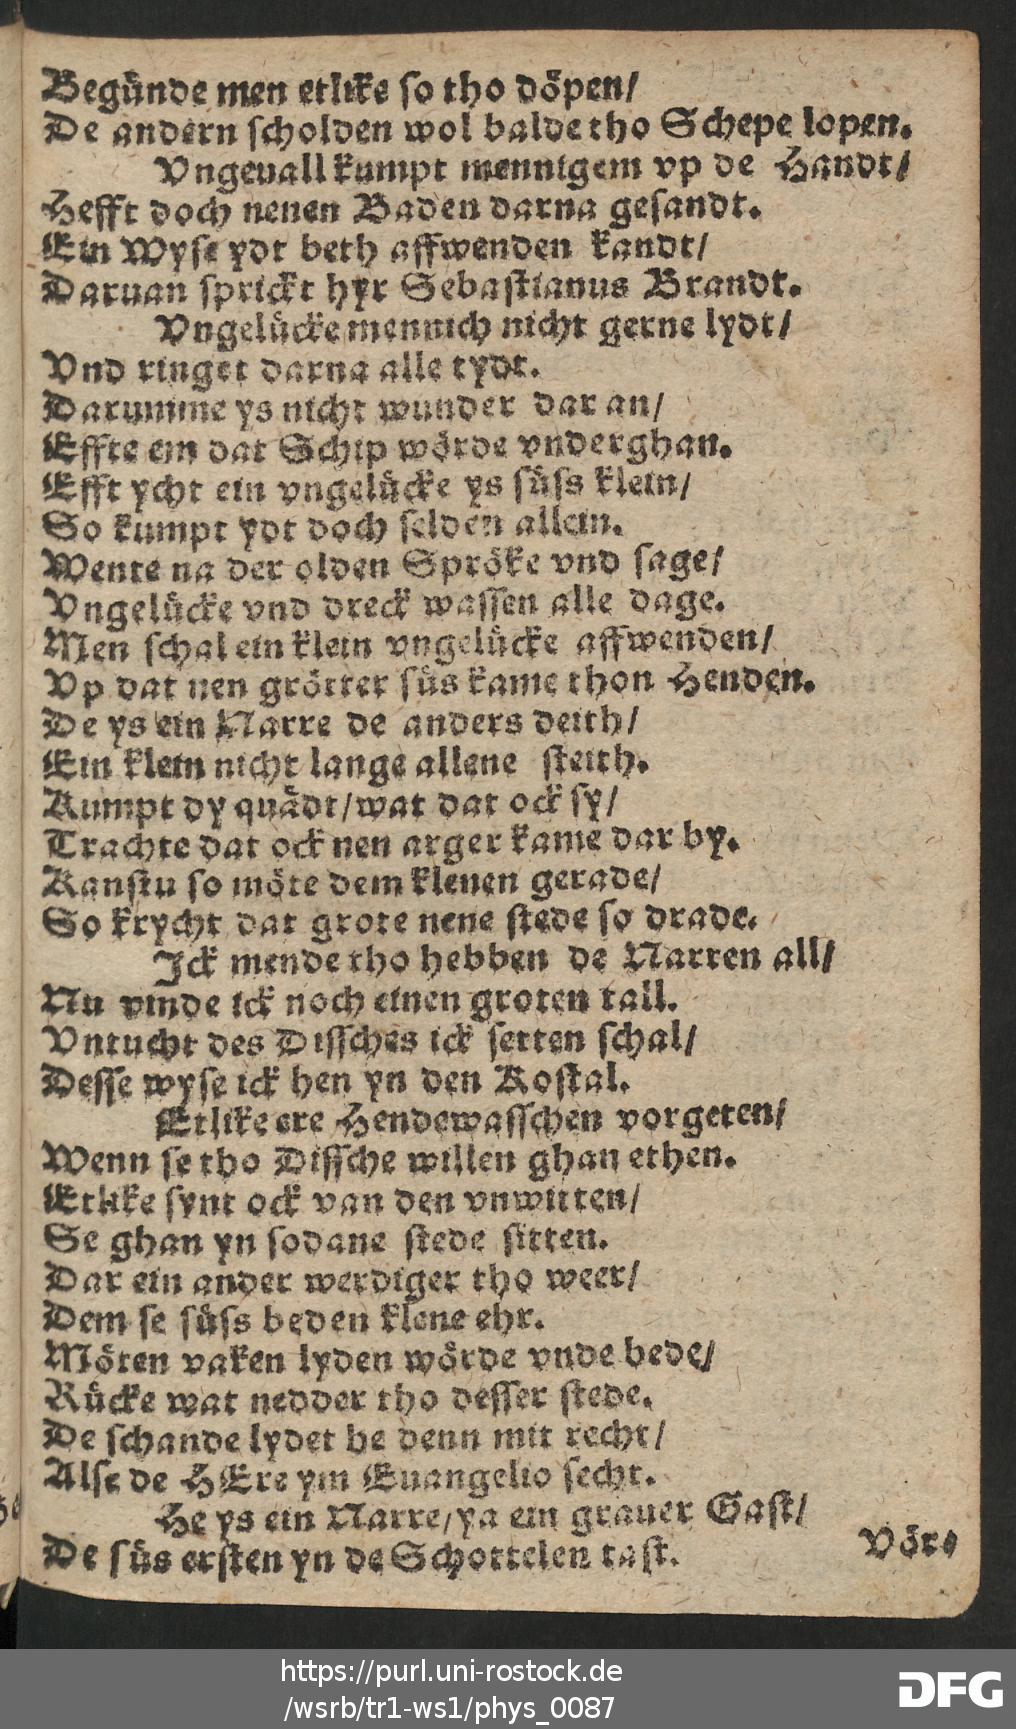 Begünde men etlike so tho döpen/
De andern scholden wol balde tho Schepe lopen.
Vngeuall kumpt mennigem vp de Handt/
Hefft doch nenen Baden darna gesandt.
Ein Wyse ydt beth affwenden kandt/
Daruan sprickt hyr Sebastianus Brandt.
Vngelücke mennich nicht gerne lydt/
Vnd ringet darna alle tydt.
Darumme ys nicht wunder dar an/
Effte em dat Schip wörde vnderghan.
Efft ycht ein vngelücke ys süss klein/
So kumpt ydt doch selden allein.
Wente na der olden Spröke vnd sage/
Vngelücke vnd dreck wassen alle dage.
Men schal ein klein vngelücke affwenden/
Vp dat nen grötter süs kame thon Henden.
De ys ein Narre de anders deith/
Ein klein nicht lange allene steith.
Kumpt dy quädt/wat dat ock sy/
Trachte dat ock nen arger kame dar by.
Kanstu so möte dem klenen gerade/
So krycht dat grote nene stede so drade.
Ick mende tho hebben de Narren all/
Nu vinde ick noch einen groten tall.
Vntucht des Dissches ick setten schal/
Desse wyse ick hen yn den Kostal.
Etlike ere Hendewasschen vorgeten/
Wenn se tho Dissche willen ghan ethen.
Etlike synt ock van den vnwitten/
Se ghan yn sodane stede sitten.
Dar ein ander werdiger tho weer/
Dem se süss beden klene ehr.
Möten vaken lyden wörde vnde bede/
Rücke wat nedder tho desser stede.
De schande lydet he denn mit recht/
Alse de HEre ym Euangelio secht.
He ys ein Narre/ya ein grauer Gast/
De süs ersten yn de Schottelen tast.
Vör/
https://purl.uni-rostock.de
/wsrb/tr1-ws1/phys_0087
DFG